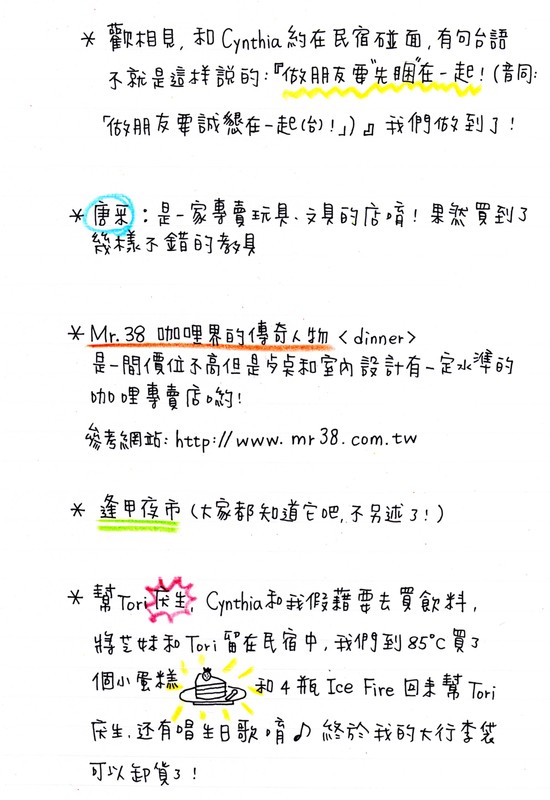 * 歡相見, 和 Cynthia 約在民宿碰面, 有句台語
不就是這樣說的:『做朋友要"先睏"在一起! (音同:
「做朋友要誠懇在一起(台)!」)』我們做到了!
* 唐采:是一家專賣玩具、文具的店唷! 果然買到了
幾樣不錯的教具
* Mr.38 咖哩界的傳奇人物 <dinner>
是一間價位不高但是餐桌和室內設計有一定水準的
咖哩專賣店喲!
參考網站: http://www.mr38.com.tw
* 逢甲夜市 (大家都知道它吧, 不另述了!)
* 幫Tori 慶生, Cynthia和我假藉要去買飲料,
將芝妹和Tori 留在民宿中, 我們到85°C買了
個小蛋糕 和4瓶Ice Fire 回來幫Tori
慶生, 还有唱生日歌唷♪ 終於我的大行李袋
可以卸貨了!